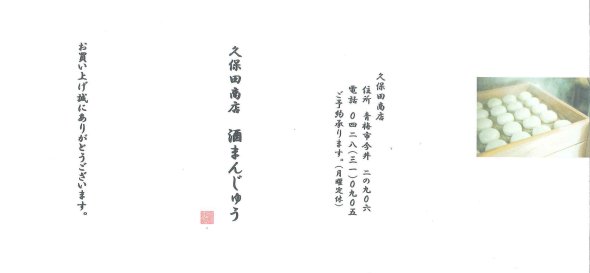 久保田商店
住所 青梅市今井 二の九〇六
電話 〇四二八(三一)〇九〇五
ご予約承ります。(月曜定休)
久保田商店 酒まんじゅう
お買い上げ誠にありがとうございます。